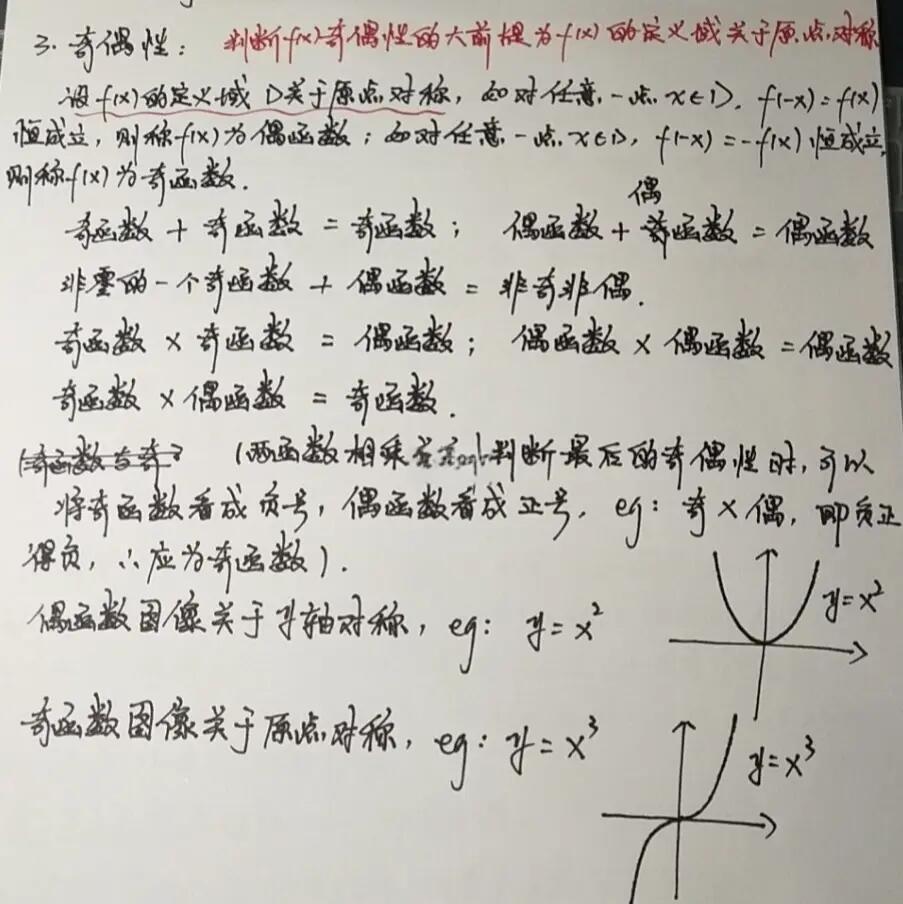 3. 奇偶性: 判断f(x)奇偶性的大前提为f(x)的定义域关于原点对称
设f(x)的定义域D关于原点对称, 如对任意一点x∈D, f(-x)=f(x)
恒成立, 则称f(x)为偶函数; 如对任意一点x∈D, f(-x)=-f(x)恒成立,
则称f(x)为奇函数.
偶
奇函数 + 奇函数 = 奇函数; 偶函数 + 函数 = 偶函数
非零的一个奇函数 + 偶函数 = 非奇非偶.
奇函数 × 奇函数 = 偶函数; 偶函数 × 偶函数 = 偶函数
奇函数 × 偶函数 = 奇函数.
(奇函数与奇 (两函数相乘判断最后的奇偶性时, 可以
将奇函数看成负号, 偶函数看成正号. eg: 奇×偶, 即负正
得负, ∴应为奇函数).
偶函数图像关于y轴对称, eg: y=x²
y=x²
奇函数图像关于原点对称, eg: y=x³
y=x³